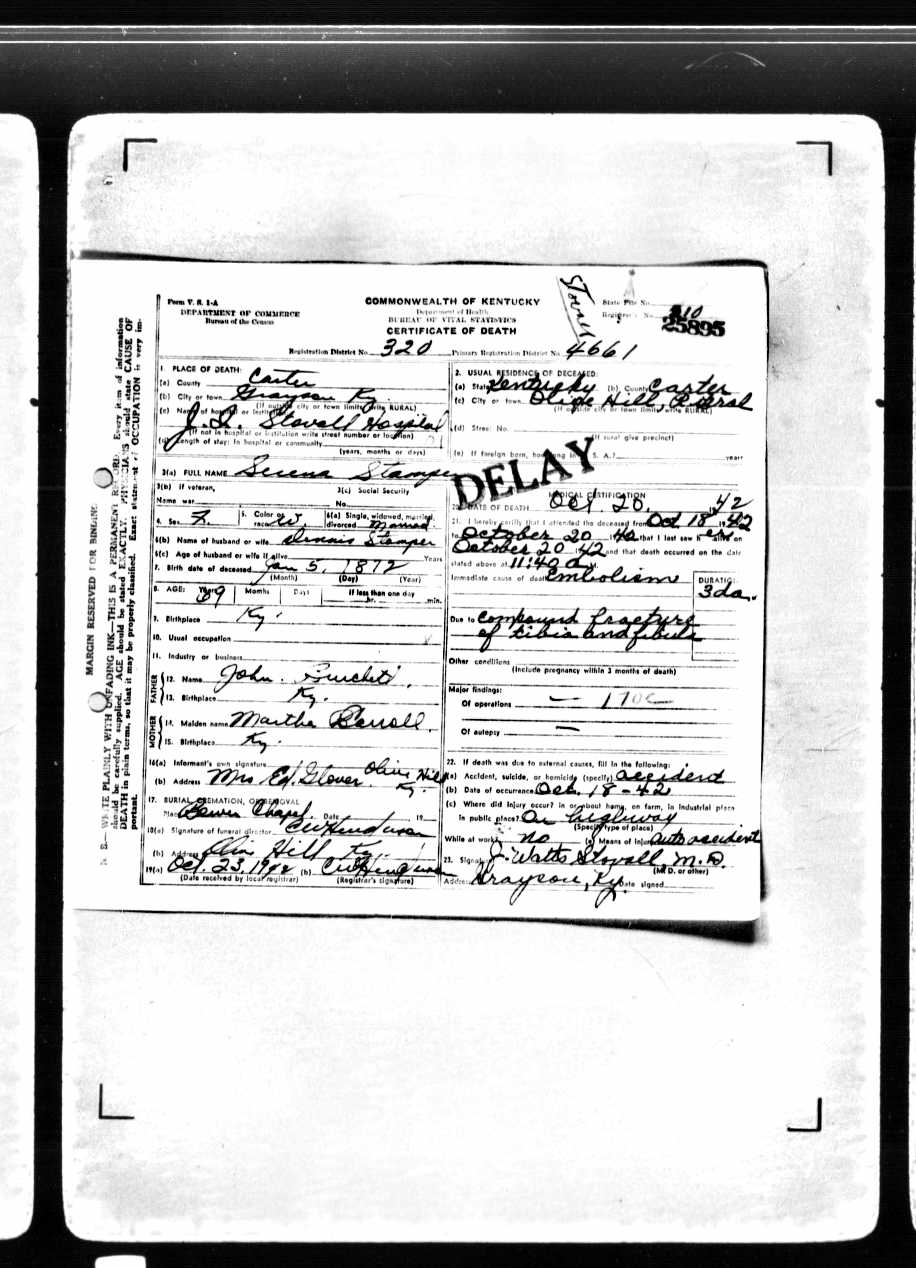 Form V. S. 1-A
DEPARTMENT OF COMMERCE
Bureau of the Census
COMMONWEALTH OF KENTUCKY
Department of Health
BUREAU OF VITAL STATISTICS
CERTIFICATE OF DEATH
State File No.
Registrar's No. 
25895
DELAY
Registration District No. 320 Primary Registration District No. 4661
1. PLACE OF DEATH:
(a) County Carter
(b) City or town Grayson Ky.
(If outside city or town limits, write RURAL)
(c) Name of hospital or institution:
Stovall Hospital
(If not in hospital or institution write street number or location)
(d) Length of stay: In hospital or community
(years, months or days)
3(a) FULL NAME Serena Stamper
3(b) If veteran,
Name war
3(c) Social Security
No.
4. Sex F. 5. Color or race W. 6(a) Single, widowed, married, divorced Married
6(b) Name of husband or wife Stamper
6(c) Age of husband or wife if alive Years
7. Birth date of deceased Jan 5, 1872
(Month) (Day) (Year)
8. AGE: Years 69 Months Days If less than one day
hr. min.
9. Birthplace Ky.
10. Usual occupation
11. Industry or business
FATHER
12. Name John
13. Birthplace Ky.
MOTHER
14. Maiden name Martha
15. Birthplace Ky.
16(a) Informant's own signature
(b) Address Mrs Ed. Glover Olive Hill Ky.
17. BURIAL, CREMATION, OR REMOVAL
Place Chapel Date 19
18(a) Signature of funeral director
(b) Address Olive Hill Ky.
19(a) Oct. 23, 1942 (b)
(Date received by local registrar) (Registrar's signature)
2. USUAL RESIDENCE OF DECEASED:
(a) State Kentucky (b) County Carter
(c) City or town Olive Hill, Rural
(If outside city or town limits write RURAL)
(d) Street No.
(If rural give precinct)
(e) If foreign born, how long in U. S. A.? years
MEDICAL CERTIFICATION
20. DATE OF DEATH Oct. 20, 42
21. I hereby certify that I attended the deceased from Oct 18 1942
to October 20 1942 that I last saw her alive on
October 20 1942 and that death occurred on the date
stated above at 11:40 a M.
Immediate cause of death Embolism
DURATION
3 da.
Due to compound fracture
of tibia and fibula
Other conditions
(Include pregnancy within 3 months of death)
Major findings:
Of operations —
Of autopsy —
22. If death was due to external causes, fill in the following:
(a) Accident, suicide, or homicide (specify) accident
(b) Date of occurrence Oct. 18-42
(c) Where did injury occur? in or about home, on farm, in industrial place
in public place? On highway
(Specify type of place)
While at work? no (e) Means of injury auto accident
23. Signature J. Watts Stovall M.D.
(M. D. or other)
Address Grayson, Ky. Date signed
MARGIN RESERVED FOR BINDING
N. B. WRITE PLAINLY WITH UNFADING INK—THIS IS A PERMANENT RECORD. Every item of information
should be carefully supplied. AGE should be stated EXACTLY. PHYSICIANS should state CAUSE OF
DEATH in plain terms, so that it may be properly classified. Exact statement of OCCUPATION is very im-
portant.